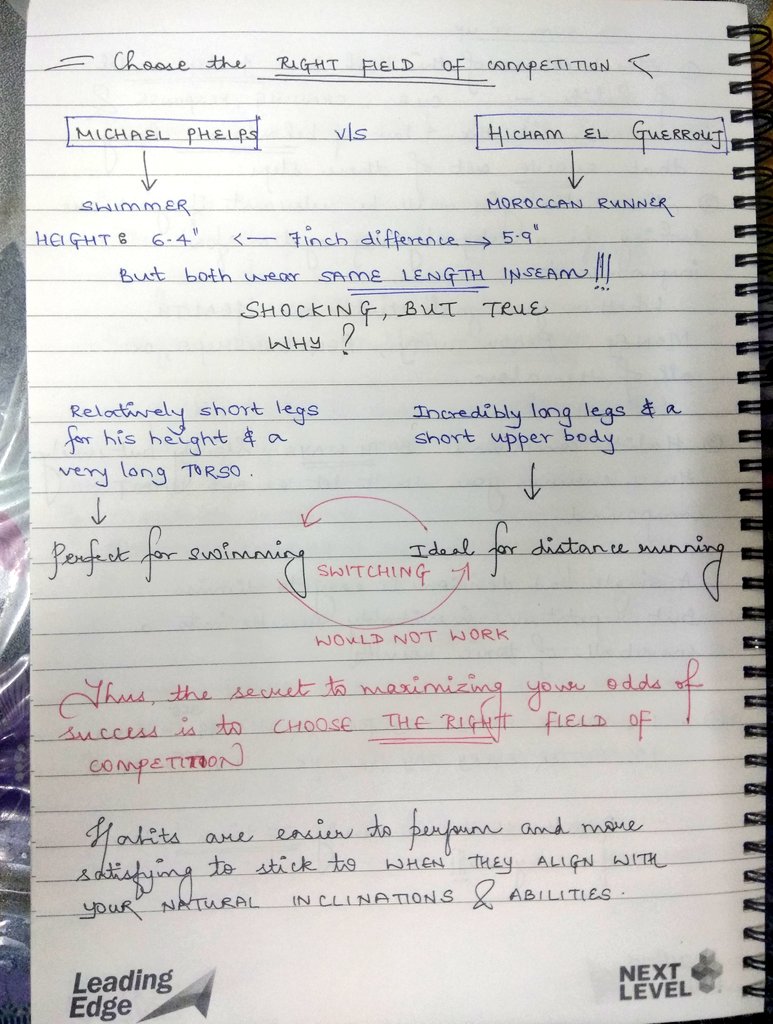 = Choose the RIGHT FIELD OF COMPETITION <
MICHAEL PHELPS v/s HICHAM EL GUERROUJ
SWIMMER MOROCCAN RUNNER
HEIGHT: 6-4" <— 7inch difference —> 5-9"
But both wear SAME LENGTH INSEAM!!!
SHOCKING, BUT TRUE
WHY?
Relatively short legs
for his height & a
very long TORSO.
Incredibly long legs & a
short upper body
Perfect for swimming
Ideal for distance running
SWITCHING
WOULD NOT WORK
Thus, the secret to maximizing your odds of
success is to CHOOSE THE RIGHT FIELD OF
COMPETITION
Habits are easier to perform and more
satisfying to stick to WHEN THEY ALIGN WITH
YOUR NATURAL INCLINATIONS & ABILITIES.
Leading
Edge
NEXT
LEVEL